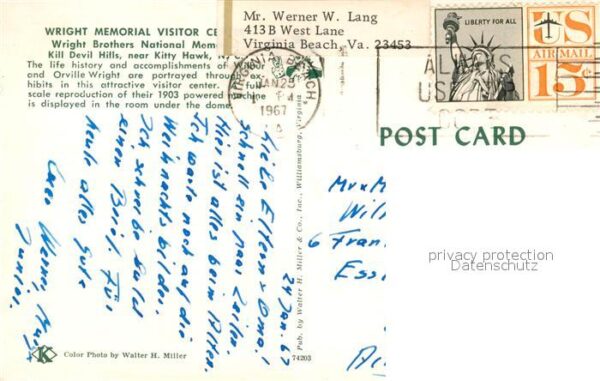 WRIGHT MEMORIAL VISITOR CE
Wright Brothers National Mem
Kill Devil Hills, near Kitty Hawk, N.
The life history and accomplishments of Wilbur
and Orville Wright are portrayed through ex-
hibits in this attractive visitor center. full
scale reproduction of their 1903 powered machine
is displayed in the room under the dome.
Mr. Werner W. Lang
413B West Lane
Virginia Beach, Va. 23453
VIRGINIA BEACH
JAN 25
PM
1967
LIBERTY FOR ALL
US
AIR MAIL
15c
POST CARD
24 Jan. 67
Liebe Eltern + Oma!
Schnell ein paar Zeilen.
Hier ist alles beim Alten.
Ich warte noch auf die
Weihnachtsbilder.
Ich schreibe bald
einen Brief. Für
heute alles Gute
Euer Werner,
6 Fran
Ess
privacy protection
Datenschutz
Pub. by Walter H. Miller & Co., Inc., Williamsburg, Virginia
K
Color Photo by Walter H. Miller
74203